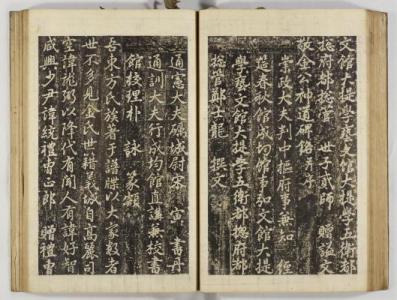 文館大提學藝文館大提學五衛都
摠府都摠管 世子貳師 贈謚文
敬金公神道碑銘 并序
崇政大夫判中樞府事兼知 經
筵春秋館成均館事弘文館大提
學藝文館大提學五衛都摠府都
摠管鄭士龍 撰文
通憲大夫礪城尉宋 寅 書丹
通訓大夫行成均館直講兼校書
館校理朴 詠 篆額
吾東方氏族著于譜牒以大家數者
世不多見金氏世籍義城自高麗司
空諱龍弼以降代有聞人有諱好智
咸興少尹諱統禮曹正郎 贈禮曹